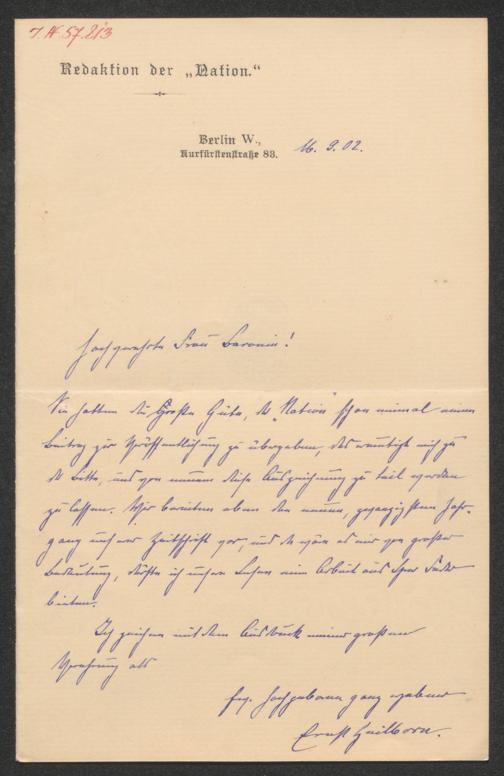 J.N. 57.213
Redaktion der „Nation."
Berlin W.,
Kurfürstenstraße 83.
16. 9. 02.
Hochverehrte Frau Baronin!
Sie hatten die große Güte, der „Nation" schon einmal einen
Beitrag zur Veröffentlichung zu übergeben, das ermutigt mich zu
der Bitte, uns von neuem diese Auszeichnung zu teil werden
zu lassen. Wir bereiten eben den neuen, zwanzigsten Jahr-
gang unserer Zeitschrift vor, und da wäre es mir von großer
Bedeutung, dürfte ich unsern Lesern eine Arbeit aus Ihrer Feder
bieten.
Ich zeichne mit dem Ausdruck meiner großen
Verehrung als
Ew. Hochgeboren ganz ergebener
Ernst Heilborn.